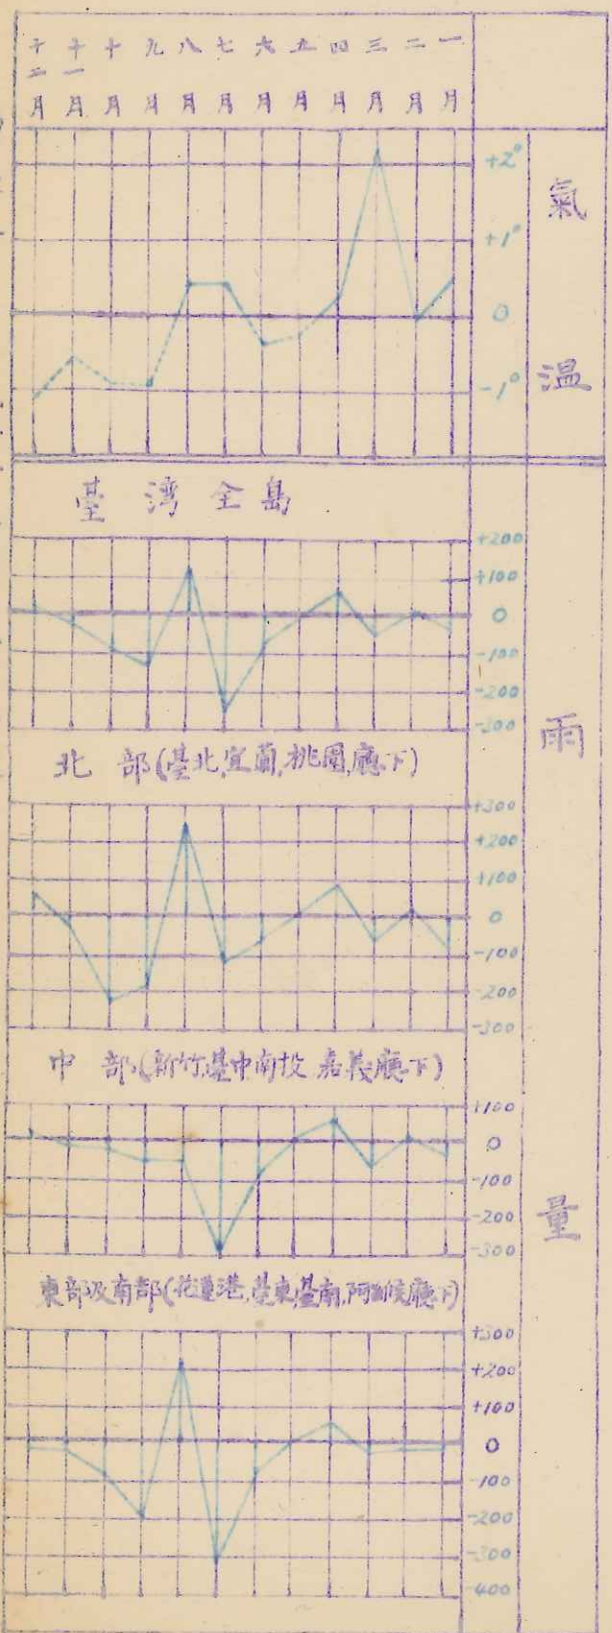 一月 二月 三月 四月 五月 六月 七月 八月 九月 十月 十一月 十二月
氣溫
+2°
+1°
0
-1°
雨量
臺湾全島
+200
+100
0
-100
-200
-300
北部(臺北,宜蘭,桃園,廳下)
+300
+200
+100
0
-100
-200
-300
中部(新竹,臺中南投嘉義廳下)
+100
0
-100
-200
-300
東部及南部(花蓮港,臺東,臺南,阿緱廳下)
+300
+200
+100
0
-100
-200
-300
-400